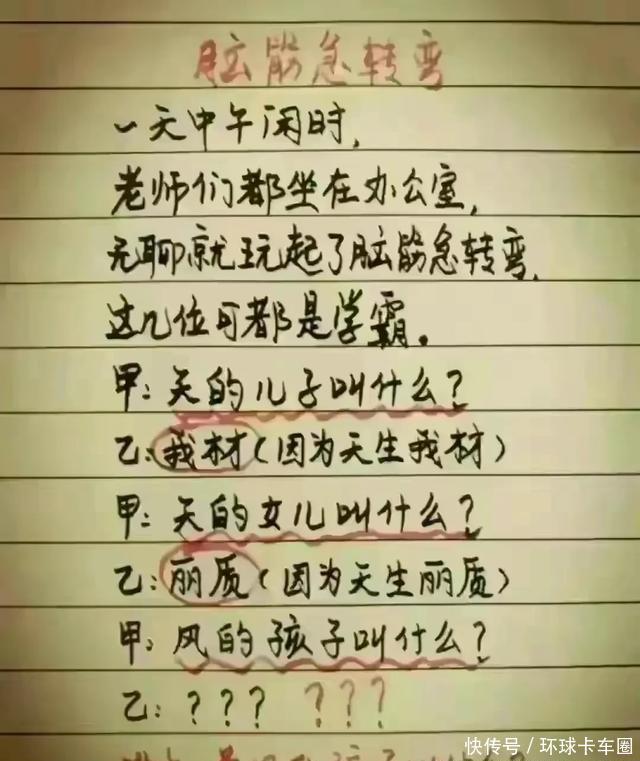 脑筋急转弯
一天中午闲时,
老师们都坐在办公室,
无聊就玩起了脑筋急转弯,
这几位可都是学霸。
甲: 天的儿子叫什么?
乙: 我材(因为天生我材)
甲: 天的女儿叫什么?
乙: 丽质(因为天生丽质)
甲: 风的孩子叫什么?
乙: ??? ???
快传号/环球卡车圈